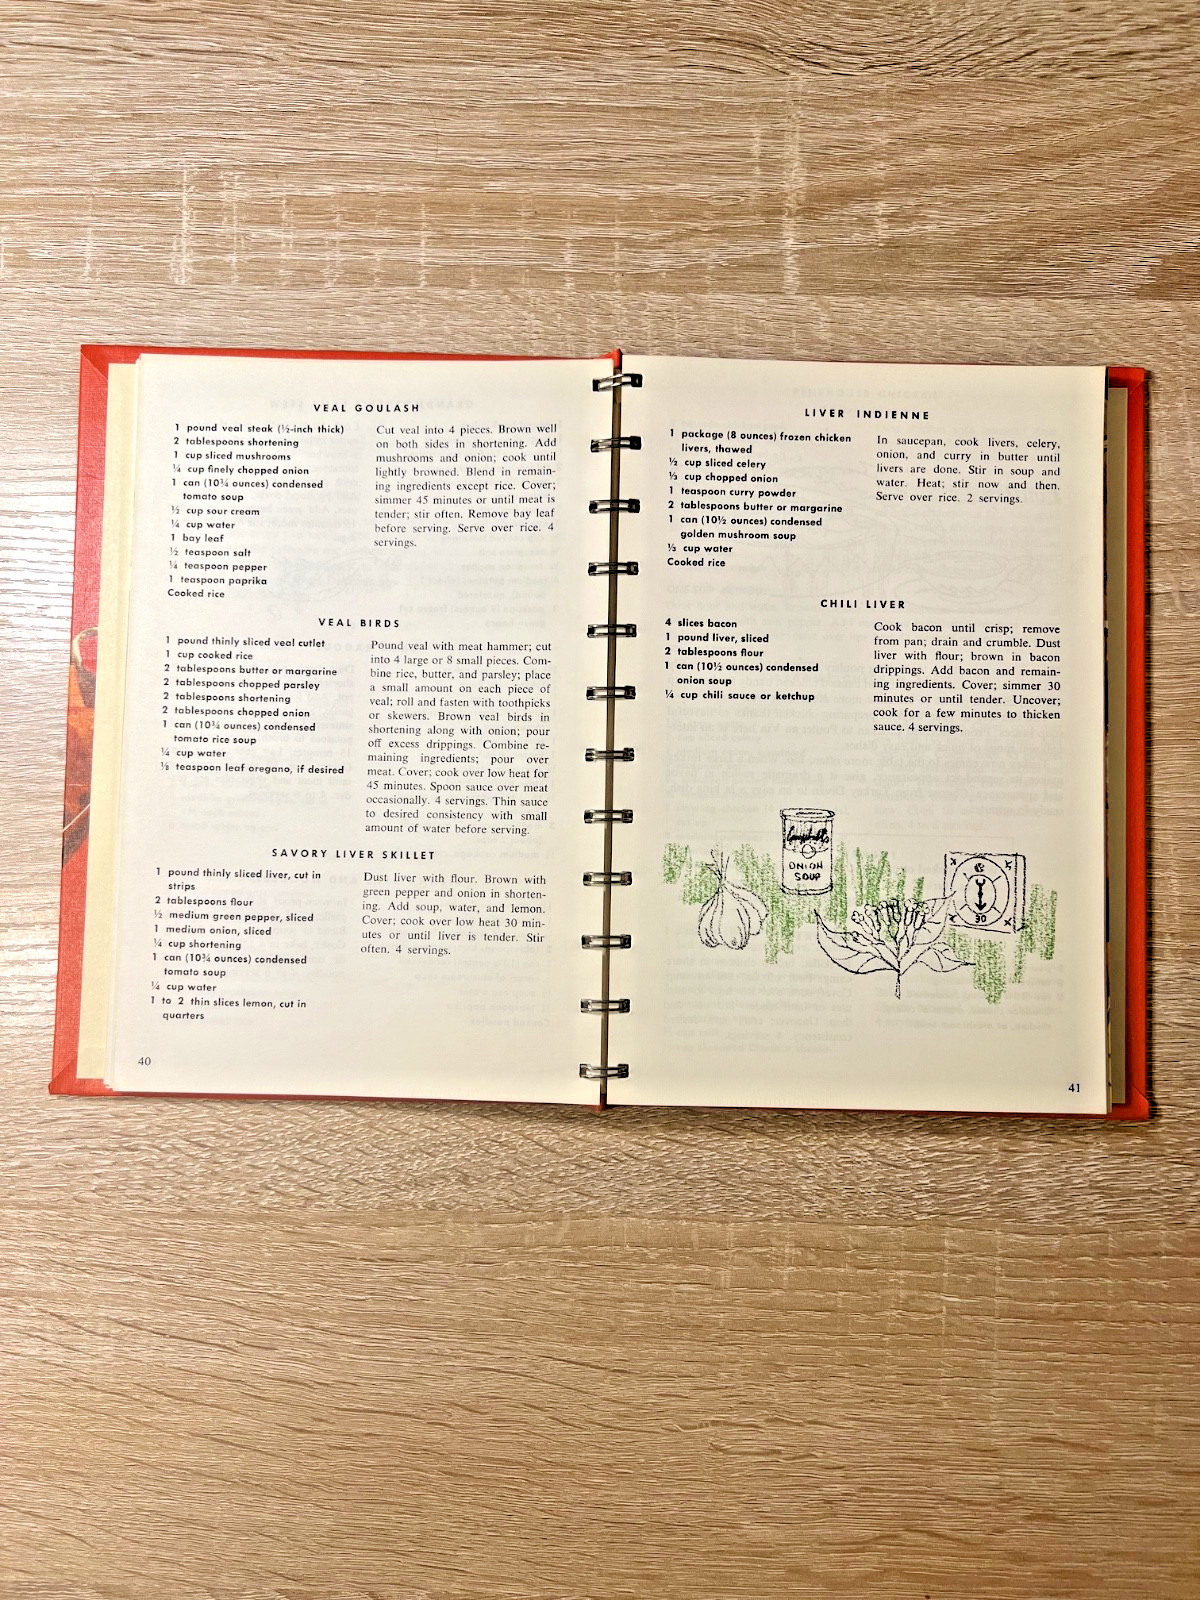 VEAL GOULASH
1 pound veal steak (½-inch thick)
2 tablespoons shortening
1 cup sliced mushrooms
¼ cup finely chopped onion
1 can (10¾ ounces) condensed
tomato soup
½ cup sour cream
¼ cup water
1 bay leaf
½ teaspoon salt
¼ teaspoon pepper
1 teaspoon paprika
Cooked rice
Cut veal into 4 pieces. Brown well
on both sides in shortening. Add
mushrooms and onion; cook until
lightly browned. Blend in remain-
ing ingredients except rice. Cover;
simmer 45 minutes or until meat is
tender; stir often. Remove bay leaf
before serving. Serve over rice. 4
servings.
VEAL BIRDS
1 pound thinly sliced veal cutlet
1 cup cooked rice
2 tablespoons butter or margarine
2 tablespoons chopped parsley
2 tablespoons shortening
2 tablespoons chopped onion
1 can (10¾ ounces) condensed
tomato rice soup
¼ cup water
⅛ teaspoon leaf oregano, if desired
Pound veal with meat hammer; cut
into 4 large or 8 small pieces. Com-
bine rice, butter, and parsley; place
a small amount on each piece of
veal; roll and fasten with toothpicks
or skewers. Brown veal birds in
shortening along with onion; pour
off excess drippings. Combine re-
maining ingredients; pour over
meat. Cover; cook over low heat for
45 minutes. Spoon sauce over meat
occasionally. 4 servings. Thin sauce
to desired consistency with small
amount of water before serving.
SAVORY LIVER SKILLET
1 pound thinly sliced liver, cut in
strips
2 tablespoons flour
½ medium green pepper, sliced
1 medium onion, sliced
¼ cup shortening
1 can (10¾ ounces) condensed
tomato soup
¼ cup water
1 to 2 thin slices lemon, cut in
quarters
Dust liver with flour. Brown with
green pepper and onion in shorten-
ing. Add soup, water, and lemon.
Cover; cook over low heat 30 min-
utes or until liver is tender. Stir
often. 4 servings.
40
LIVER INDIENNE
1 package (8 ounces) frozen chicken
livers, thawed
½ cup sliced celery
⅓ cup chopped onion
1 teaspoon curry powder
2 tablespoons butter or margarine
1 can (10½ ounces) condensed
golden mushroom soup
⅓ cup water
Cooked rice
In saucepan, cook livers, celery,
onion, and curry in butter until
livers are done. Stir in soup and
water. Heat; stir now and then.
Serve over rice. 2 servings.
CHILI LIVER
4 slices bacon
1 pound liver, sliced
2 tablespoons flour
1 can (10½ ounces) condensed
onion soup
¼ cup chili sauce or ketchup
Cook bacon until crisp; remove
from pan; drain and crumble. Dust
liver with flour; brown in bacon
drippings. Add bacon and remain-
ing ingredients. Cover; simmer 30
minutes or until tender. Uncover;
cook for a few minutes to thicken
sauce. 4 servings.
Campbell's
ONION
SOUP
30
41